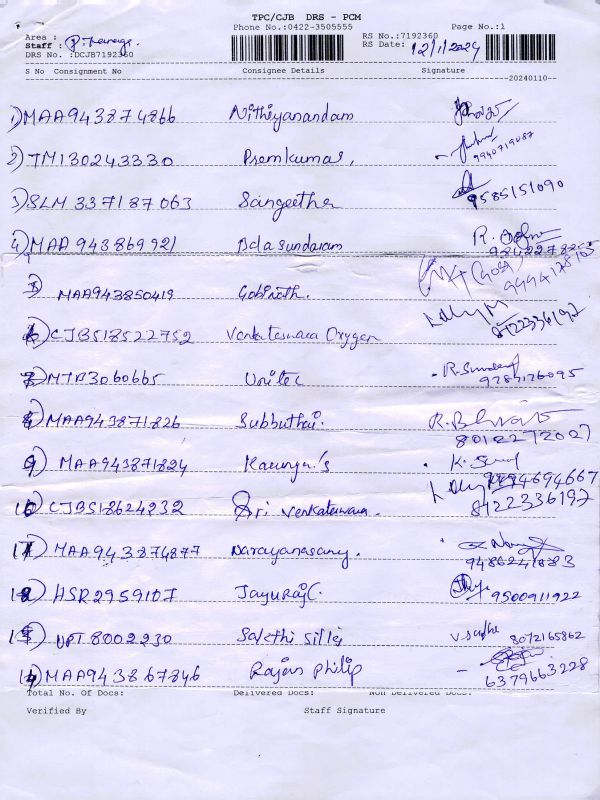 TPC/CJB DRS - PCM
Phone No.:0422-3505555 Page No.:1
Area : RS No.:7192360
Staff : RS Date: 12/1/2024
DRS No. :DCJB7192360
S No Consignment No Consignee Details Signature
20240110--
1) MAA943874866 Nithiyanandam
2) TM130243330 Premkumar, 9940719087
3) SLM 337187063 Sangeetha 9585151090
4) MAA 943869921 Balasundaram R.
5) MAA943850419 Gobinath. 9994178103
6) CJB518522752 Venkateswara Oxygen 8122336192
7) MTB3060665 Unitec 9787176095
8) MAA943871826 Subbuthai. 8012272027
9) MAA943871824 Kaurya's K.
10) CJB518624232 Sri Venkateswara. 8122336192
11) MAA943874877 Narayanasamy. 9486241883
12) HSR2959107 Jayuraj C. 9500911922
13) UPT8002230 Sakthi Silks 8072165862
14) MAA943867846 Rajan Philip 6379663228
Total No. Of Docs: Delivered Docs: Non Delivered Docs:
Verified By Staff Signature